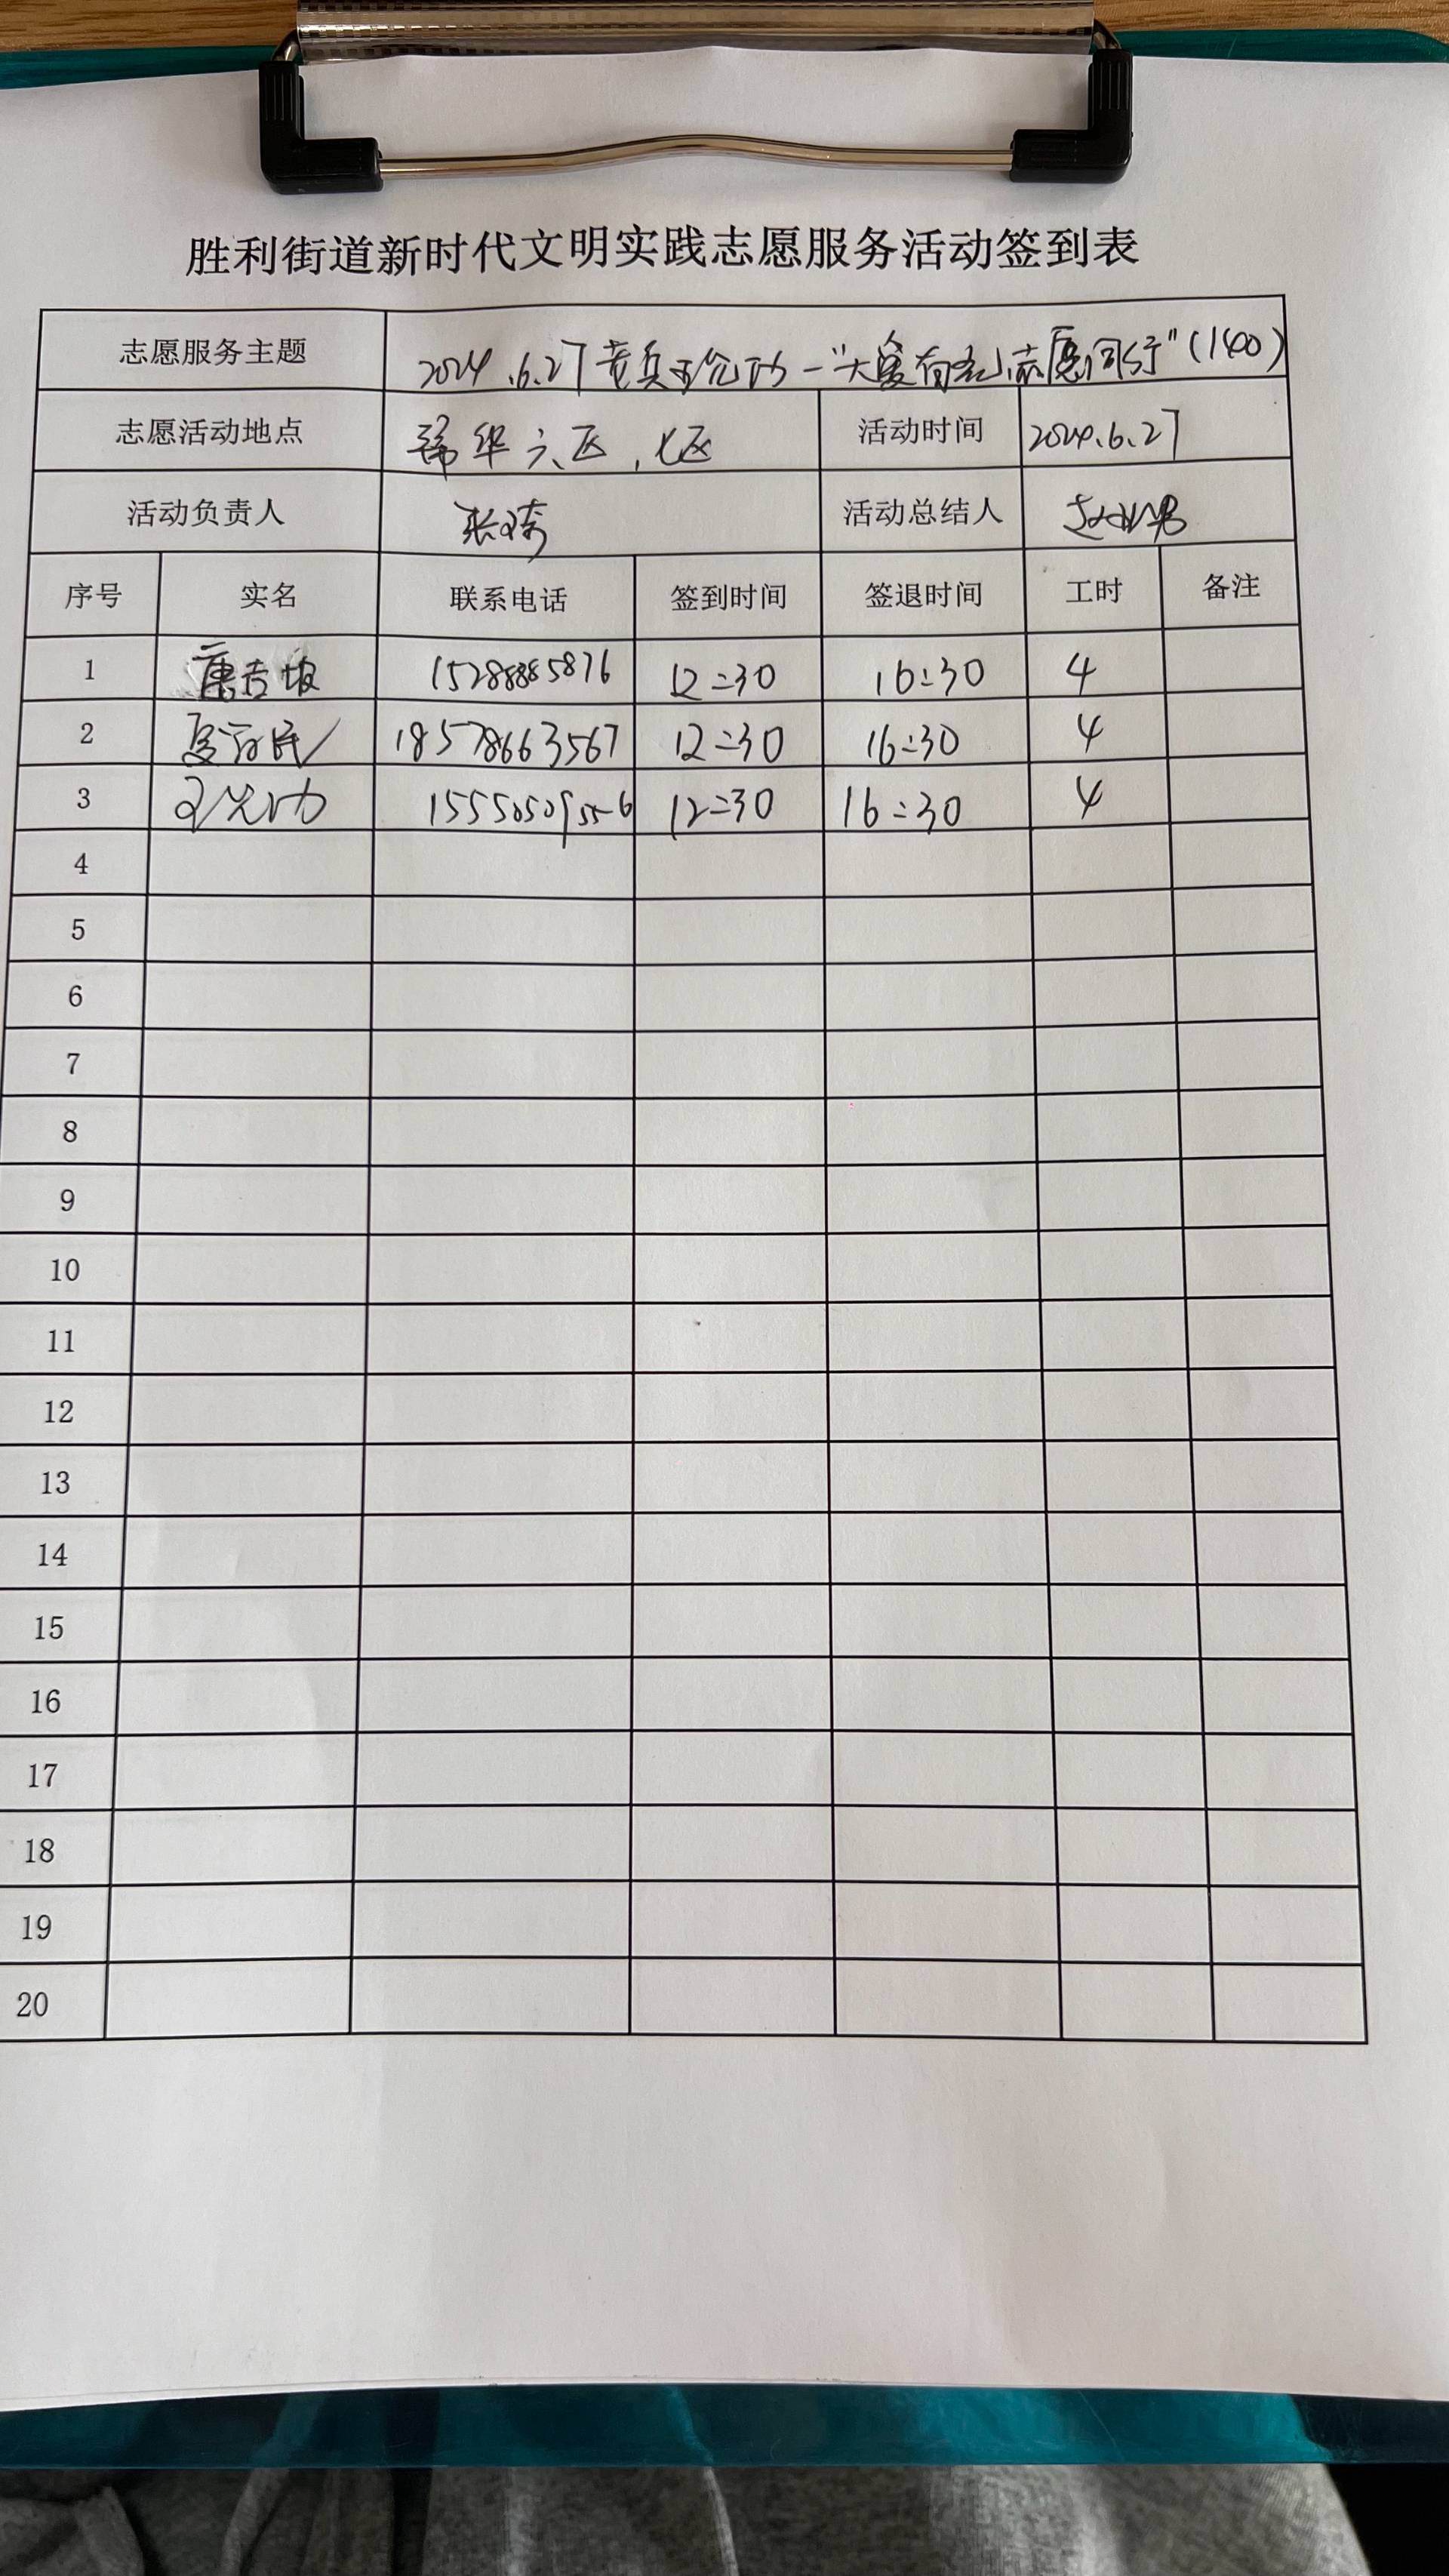 胜利街道新时代文明实践志愿服务活动签到表
志愿服务主题 2024.6.27 "大爱有 志愿同行"(140)
志愿活动地点 华六区，七区 活动时间 2024.6.27
活动负责人 张 活动总结人
序号 实名 联系电话 签到时间 签退时间 工时 备注
1 唐吉 15288885876 12:30 16:30 4
2 18578663567 12:30 16:30 4
3 15550509556 12:30 16:30 4
4
5
6
7
8
9
10
11
12
13
14
15
16
17
18
19
20